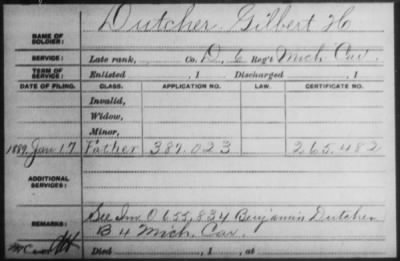 Dutcher Gilbert H
NAME OF SOLDIER:
SERVICE: Late rank, Co. D, 6 Reg't Mich Cav.
TERM OF SERVICE: Enlisted , 1 Discharged , 1
DATE OF FILING. CLASS. APPLICATION NO. LAW. CERTIFICATE NO.
Invalid,
Widow,
Minor,
1889, Jan 17 Father 387.023 265.482
ADDITIONAL SERVICES:
REMARKS: See Inv. O 655,834 Benjamin Dutcher
B 4 Mich. Cav.
Died , 1 , at